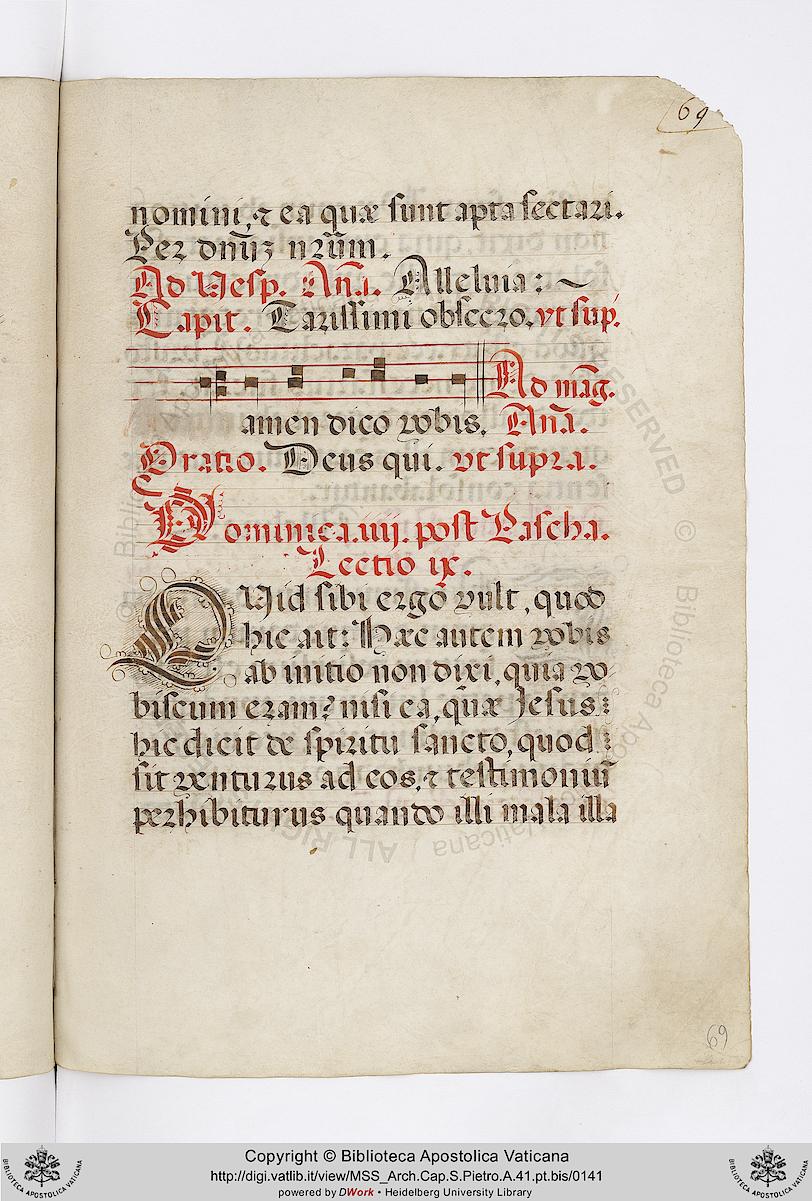 69
nomini, ⁊ ea quæ sunt apta sectari.
Per dnūȝ nrūm.
Ad Vesp. Anã. Alleluia: ~
Capit. Carissimi obsecro, vt sup.
Ad mãg.
amen dico vobis. Anã.
Oratio. Deus qui. vt supra.
Dominica. iiij. post Pascha.
Lectio ix.
QVid sibi ergo vult, quod
hic ait: Hæc autem vobis
ab initio non dixi, quia vo
biscum eram? nisi ea, quæ Jesus:
hic dicit de spiritu sancto, quod:
sit venturus ad eos, ⁊ testimoniū
perhibiturus quando illi mala illa
69
Copyright © Biblioteca Apostolica Vaticana
http://digi.vatlib.it/view/MSS_Arch.Cap.S.Pietro.A.41.pt.bis/0141
powered by DWork • Heidelberg University Library